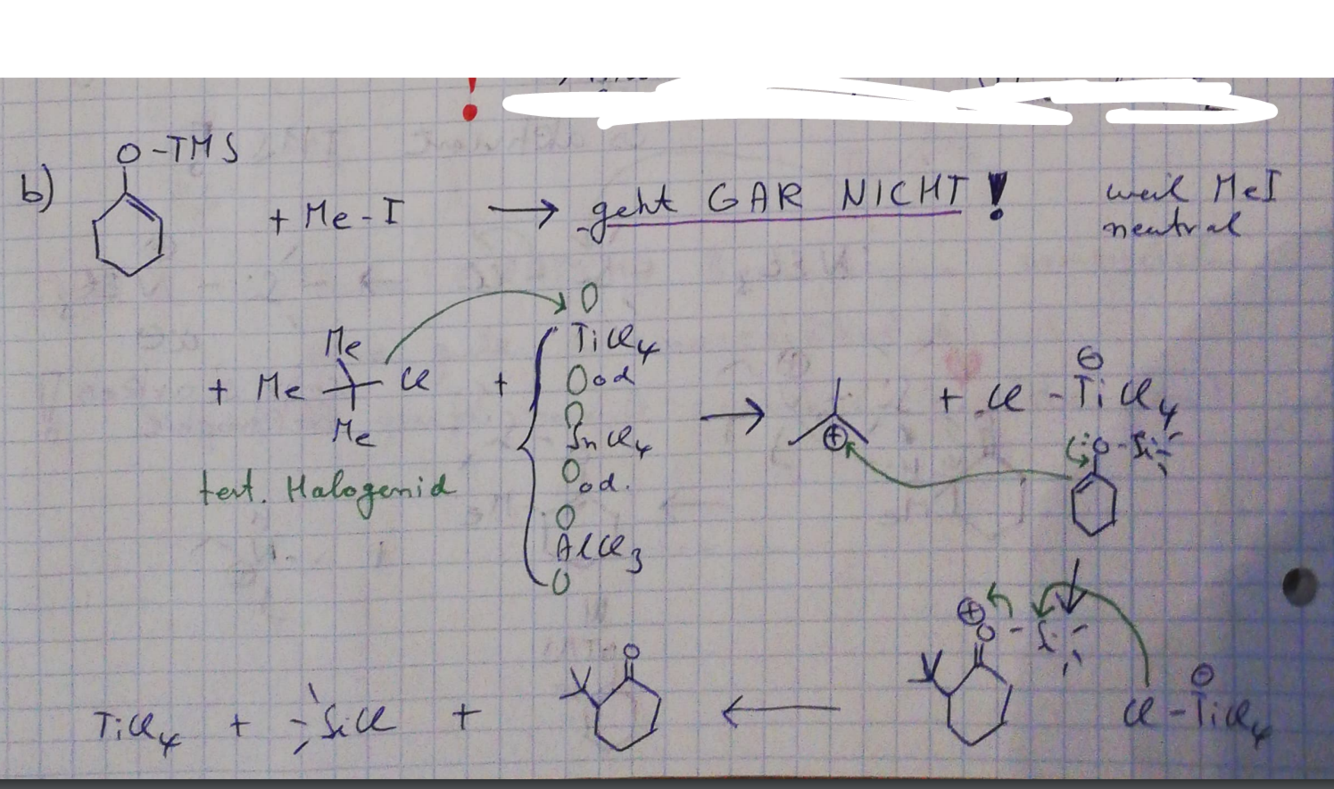 !
b)
O-TMS
+ Me-I → geht GAR NICHT! weil MeI
neutral
Me
+ Me Cl + TiCl4
od
SnCl4
od.
AlCl3
Me
tert. Halogenid
→ ⊕ + Cl-TiCl4
⊖
O-Si
⊕
O-Si
⊖
Cl-TiCl4
O
TiCl4 + SiCl + ←